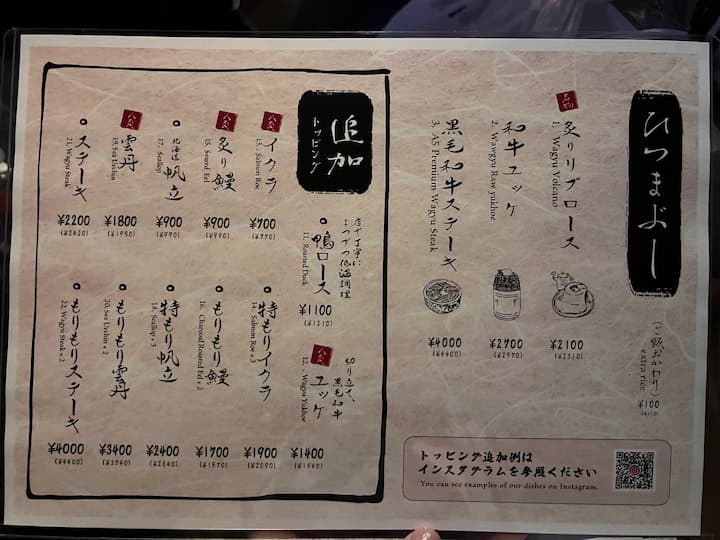 ひつまぶし
(ご飯おかわり)
extra rice
¥100
(¥110)
名物
炙りリブロース
1. Wagyu Volcano
¥2100
(¥2310)
和牛ユッケ
2. Wawgyu Raw yukhoe
¥2700
(¥2970)
黒毛和牛ステーキ
3. A5 Premium Wagyu Steak
¥4000
(¥4400)
トッピング追加例は
インスタグラムを参照ください
You can see examples of our dishes on Instagram.
追加
トッピング
店で丁寧に
1つづつ低温調理
鴨ロース
11. Roasted Duck
¥1100
(¥1210)
人気
切り立て、
黒毛和牛
ユッケ
12. Wagyu Yukhoe
¥1400
(¥1540)
人気
イクラ
13. Salmon Roe
¥700
(¥770)
特もりイクラ
14. Salmon Roe x 3
¥1900
(¥2090)
人気
炙り鰻
15. Seared Eel
¥900
(¥990)
もりもり鰻
16. Charcoal Roasted Eel x 2
¥1700
(¥1870)
北海道 帆立
17. Scallop
¥900
(¥990)
特もり帆立
18. Scallop x 3
¥2400
(¥2640)
人気
雲丹
19. Sea Urchin
¥1800
(¥1980)
もりもり雲丹
20. Sea Urchin x 2
¥3400
(¥3740)
ステーキ
21. Wagyu Steak
¥2200
(¥2420)
もりもりステーキ
22. Wagyu Steak x 2
¥4000
(¥4400)